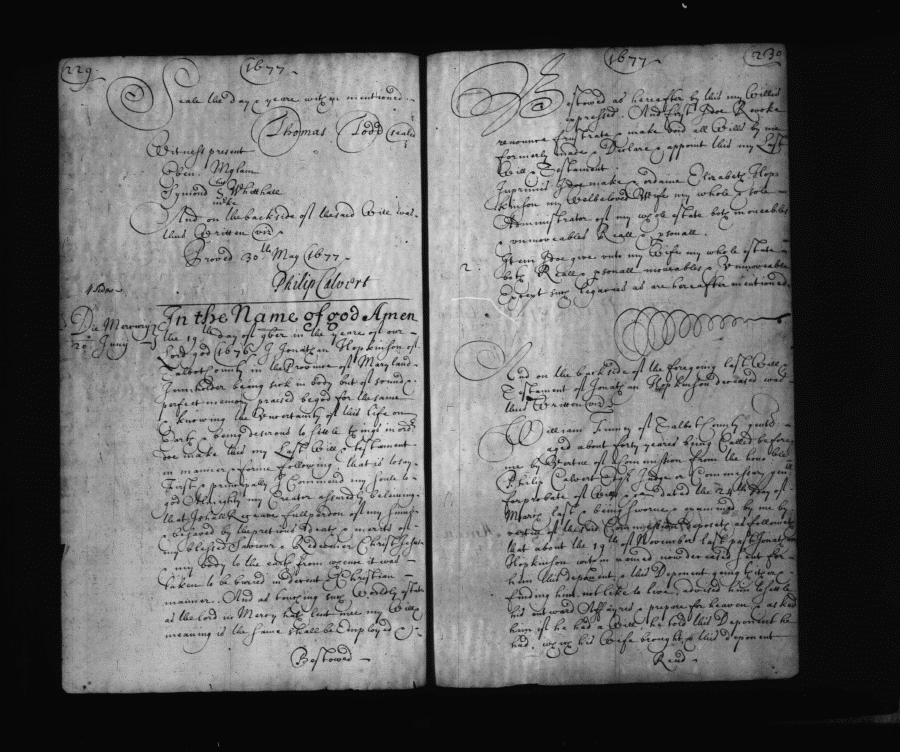 229
1677
Seale the day & yeare within mentioned
Thomas Todd (seale
Witness present
Owen. Mylam
his
Symond S Whithall
m̃ke
And on the backside of the said Will was
thus Written (vizt
Proved 30th May (1677
Philip Calvert
4 Sides
Die Mercurij
20: Juny
In the Name of god Amen
the 19th day of 9ber in the yeare of our
Lord god (1676 I Jonathan Hopkinson of
Talbot County in the Province of Maryland
Innholder being sick in body but of sound &
perfect memory praised be god for the same
& knowing the uncertainty of this life on
Earth & being desirous to settle things in ordr
doe make this my Last Will & testament
in manner & forme following that is to say
First & principally I Commend my soule to
god Almighty my Creator assuredly beleiving
that I shall receive full pardon of my sinns
& be saved by the precious death & merits of
my blessed Saviour & Redeemer Christ Jesus
& my body to the earth from whence it was
taken to be buried in decent & Christian
manner. And as touching such Worldly estate
as the lord in Mercy hath lent me my Will &
meaning is the same shall be imployed &
Bestowed
1677
230
Bestowed as hereafter by this my Will is
expressed. And first I doe Revoke
renounce frustrate & make void all Wills by me
formerly made & Declare & appoint this my Last
Will & Testament.
Inprimis I doe make & ordaine Elizabeth Hop
kinson my Welbeloved Wife my whole & sole
Administrator of my whole estate both moveables
& unmoveables Reall & psonall
2.
Item I doe give unto my Wife my whole estate
both Reall & psonall moveables & Unmoveable
Except such Legacies as are hereafter mentioned
And on the backside of the foregoing last Will &
Testament of Jonathan Hopkinson deceased was
thus Written (vizt
William Finney of Talbt County gent
aged about forty yeares being Called before
me by Vertue of Commission from the honble
Philip Calvert Esqr Judge or Commissary genll
for probate of Wills & dated the 24th day of
March last & being sworne & examined by me by
vertue of the said Commission Deposeth as followeth
that about the 19th of November last past Jonathan
Hopkinson within named now deceased sent for
him this deponent & this Deponent going to him &
finding him not like to live, advised him to settle
his outward Affaires & prepare for heaven & asked
him if he had a Will he told this Deponent he
had, which his Wife brought & this deponent
Read